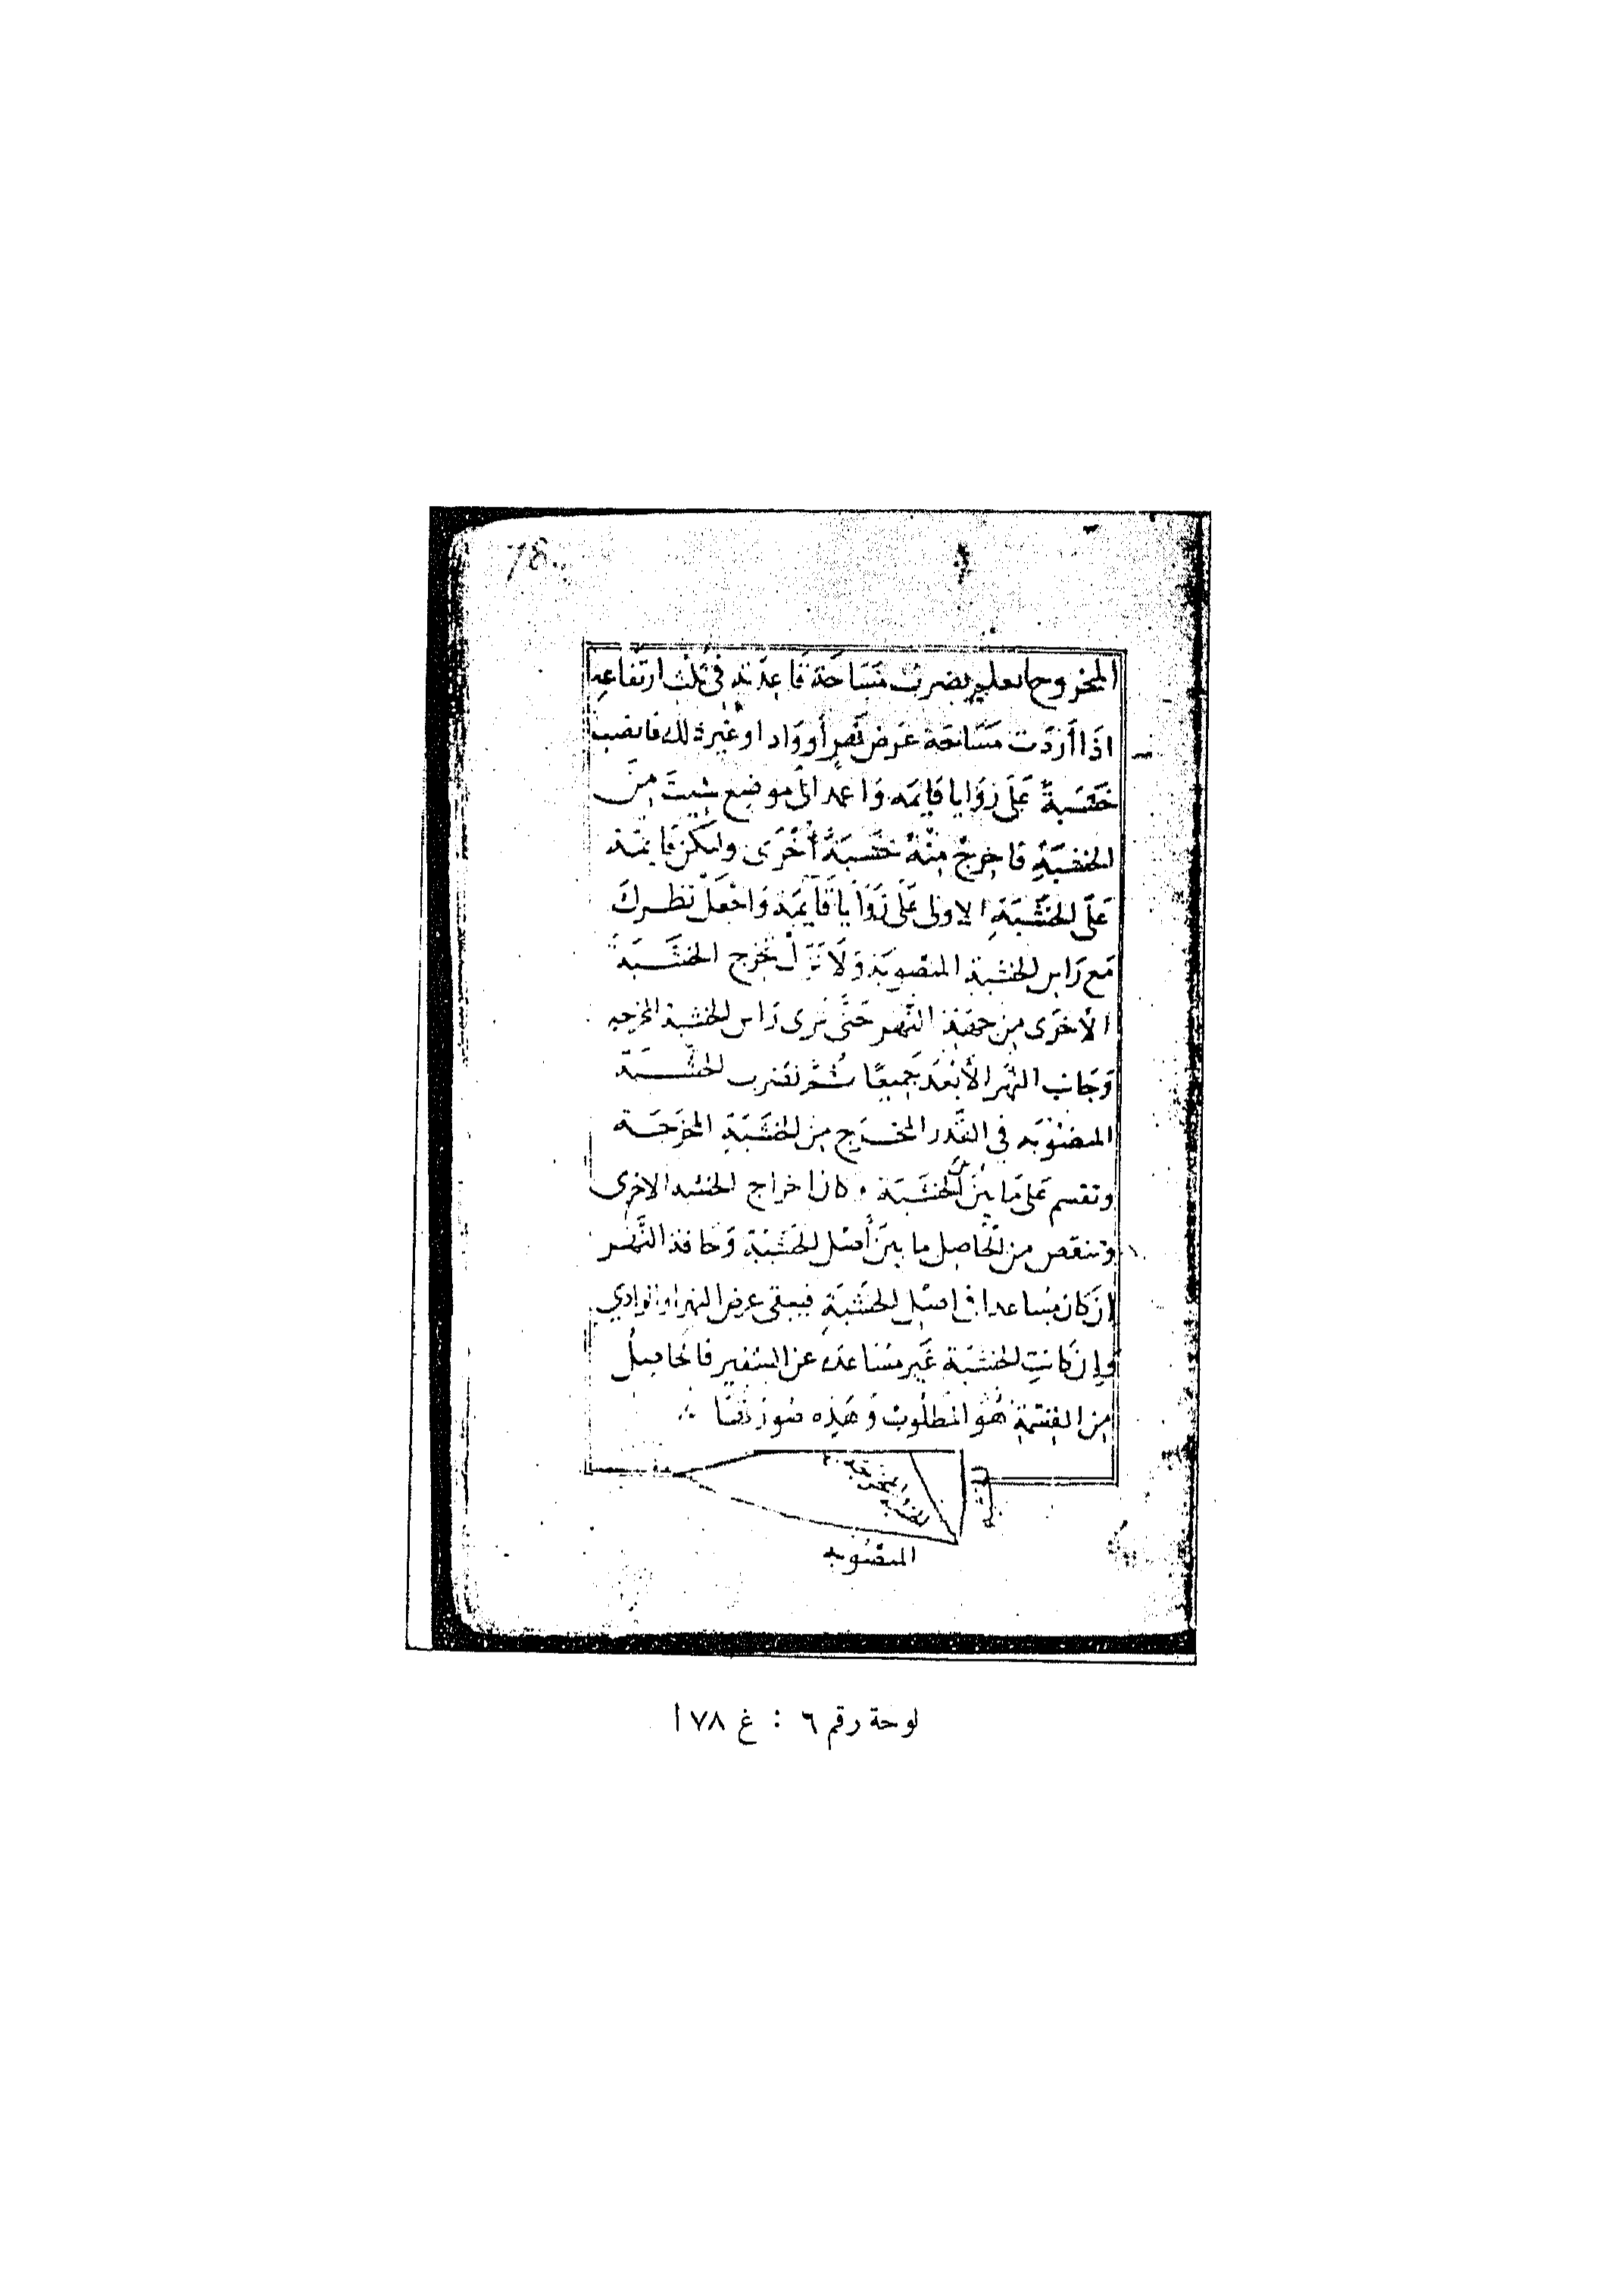 78
المخروط بضرب مساحة قاعدته في ثلث ارتفاعه
اذا أردت مساحة عرض نهر أو واد او غير ذلك فانصب
خشبة على زوايا قايمه واعمد الى موضع شيت من
الخشبة فاخرج منه خشبة أخرى ولتكن قايمة
على الخشبة الاولى على زوايا قايمة واجعل نظرك
مع راس الخشبة المنصوبة ولا تزل تخرج الخشبة
الأخرى من جهة النهر حتى ترى راس الخشبة المخرجه
وجانب النهر الأبعد جميعا ثم تضرب الخشبة
المنصوبه في القدر المخرج من الخشبة المخرجة
وتقسم على ما بين الخشبة وكان اخراج الخشبه الاخرى
وتنقص من الحاصل ما بين أصل الخشبة وحافة النهر
إن كان متباعدا في اصل الخشبة فيبقى عرض النهر او الوادي
وإن كانت الخشبة غير متباعده عن الشفير فالحاصل
من القسمة هو المطلوب وهذه صورتها
المنصوبه
لوحة رقم ٦ : غ ٧٨ ا